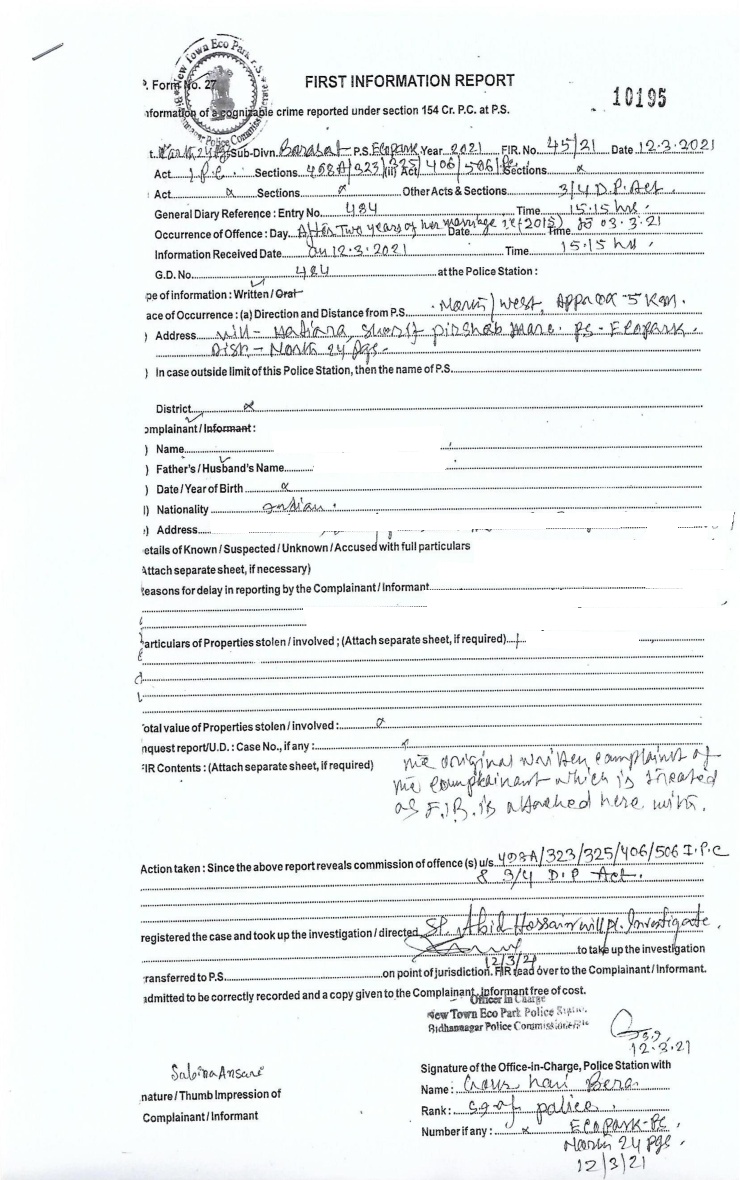 New Town Eco Park P.S.
Bidhannagar Police Commissionerate
P. Form No. 27
FIRST INFORMATION REPORT
10195
nformation of a cognizable crime reported under section 154 Cr. P.C. at P.S.
t. North 24 Pgs Sub-Divn. Barasat P.S. Ecopark Year 2021 FIR. No. 45/21 Date 12.3.2021
Act I.P.C. Sections 498A/323/325/406/506 IPC (ii) Act Sections x
Act x Sections x Other Acts & Sections 3/4 D.P. Act.
General Diary Reference : Entry No. 484 Time 15.15 hrs.
Occurrence of Offence : Day After Two years of her marriage i.e (2015) Date Time to 03.3.21
Information Received Date on 12.3.2021 Time 15.15 hrs.
G.D. No. 484 at the Police Station :
pe of information : Written / Oral
ace of Occurrence : (a) Direction and Distance from P.S. North/West, Approx - 5 Km.
) Address Vill - Hatiara, Sharif pirshab more. PS - Ecopark.
Dist - North 24 Pgs.
) In case outside limit of this Police Station, then the name of P.S.
District x
omplainant / Informant :
) Name
) Father's / Husband's Name
) Date / Year of Birth x
l) Nationality Indian.
) Address
etails of Known / Suspected / Unknown / Accused with full particulars
Attach separate sheet, if necessary)
easons for delay in reporting by the Complainant / Informant
articulars of Properties stolen / involved ; (Attach separate sheet, if required)
otal value of Properties stolen / involved : x
nquest report/U.D. : Case No., if any :
FIR Contents : (Attach separate sheet, if required) The original written complaint of
the complainant which is treated
as F.I.R. is attached here with.
Action taken : Since the above report reveals commission of offence (s) u/s. 498A/323/325/406/506 I.P.C
& 3/4 D.P Act.
registered the case and took up the investigation / directed SI. Abid Hossain will pl. Investigate.
to take up the investigation
12/3/21
ransferred to P.S. on point of jurisdiction. FIR read over to the Complainant / Informant.
admitted to be correctly recorded and a copy given to the Complainant, Informant free of cost.
Officer in Charge
New Town Eco Park Police Station
Bidhannagar Police Commissionerate
12.3.21
Sabina Ansari
Signature of the Office-in-Charge, Police Station with
nature / Thumb Impression of
Complainant / Informant
Name : Gour Hari Bera
Rank : S.I of police.
Number if any : x Ecopark-PS
North 24 Pgs.
12/3/21